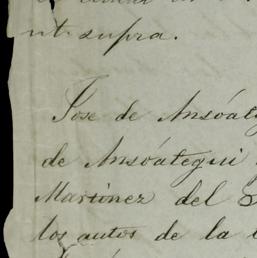 ut supra.
Jose de Ansóateg
de Ansóategui
Martinez del
los autos de la